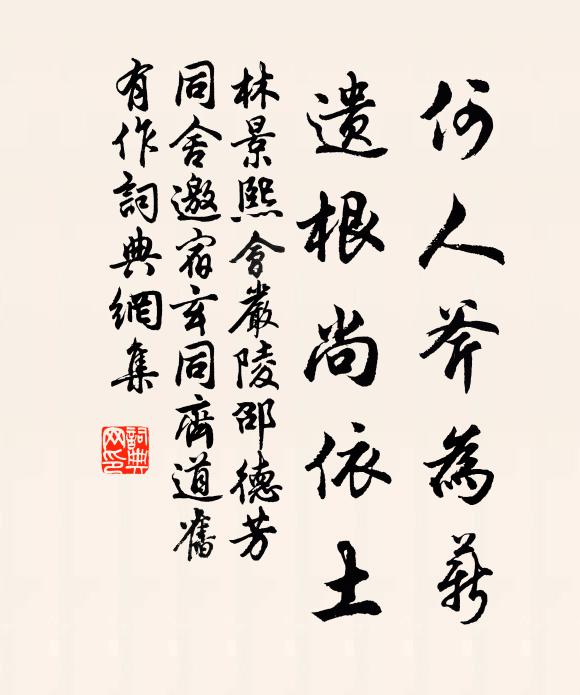 何人斧為薪
遺根尚依土
林景熙會嚴陵邵德芳
同舍邀宿玄同齊道舊
有作詞典網集
詞典網印